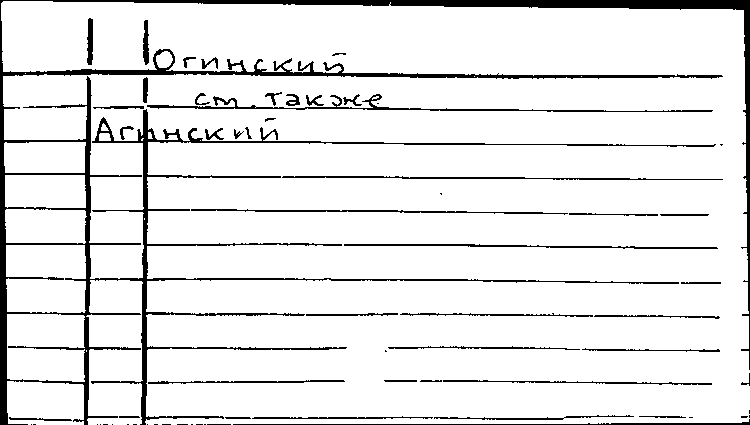 Огинский
см. также
Агинский